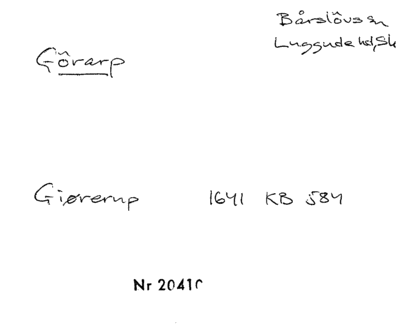 Bårslövs sn
Luggude hd, Sk
Görarp
Giørerup 1641 KB 584
Nr 20410